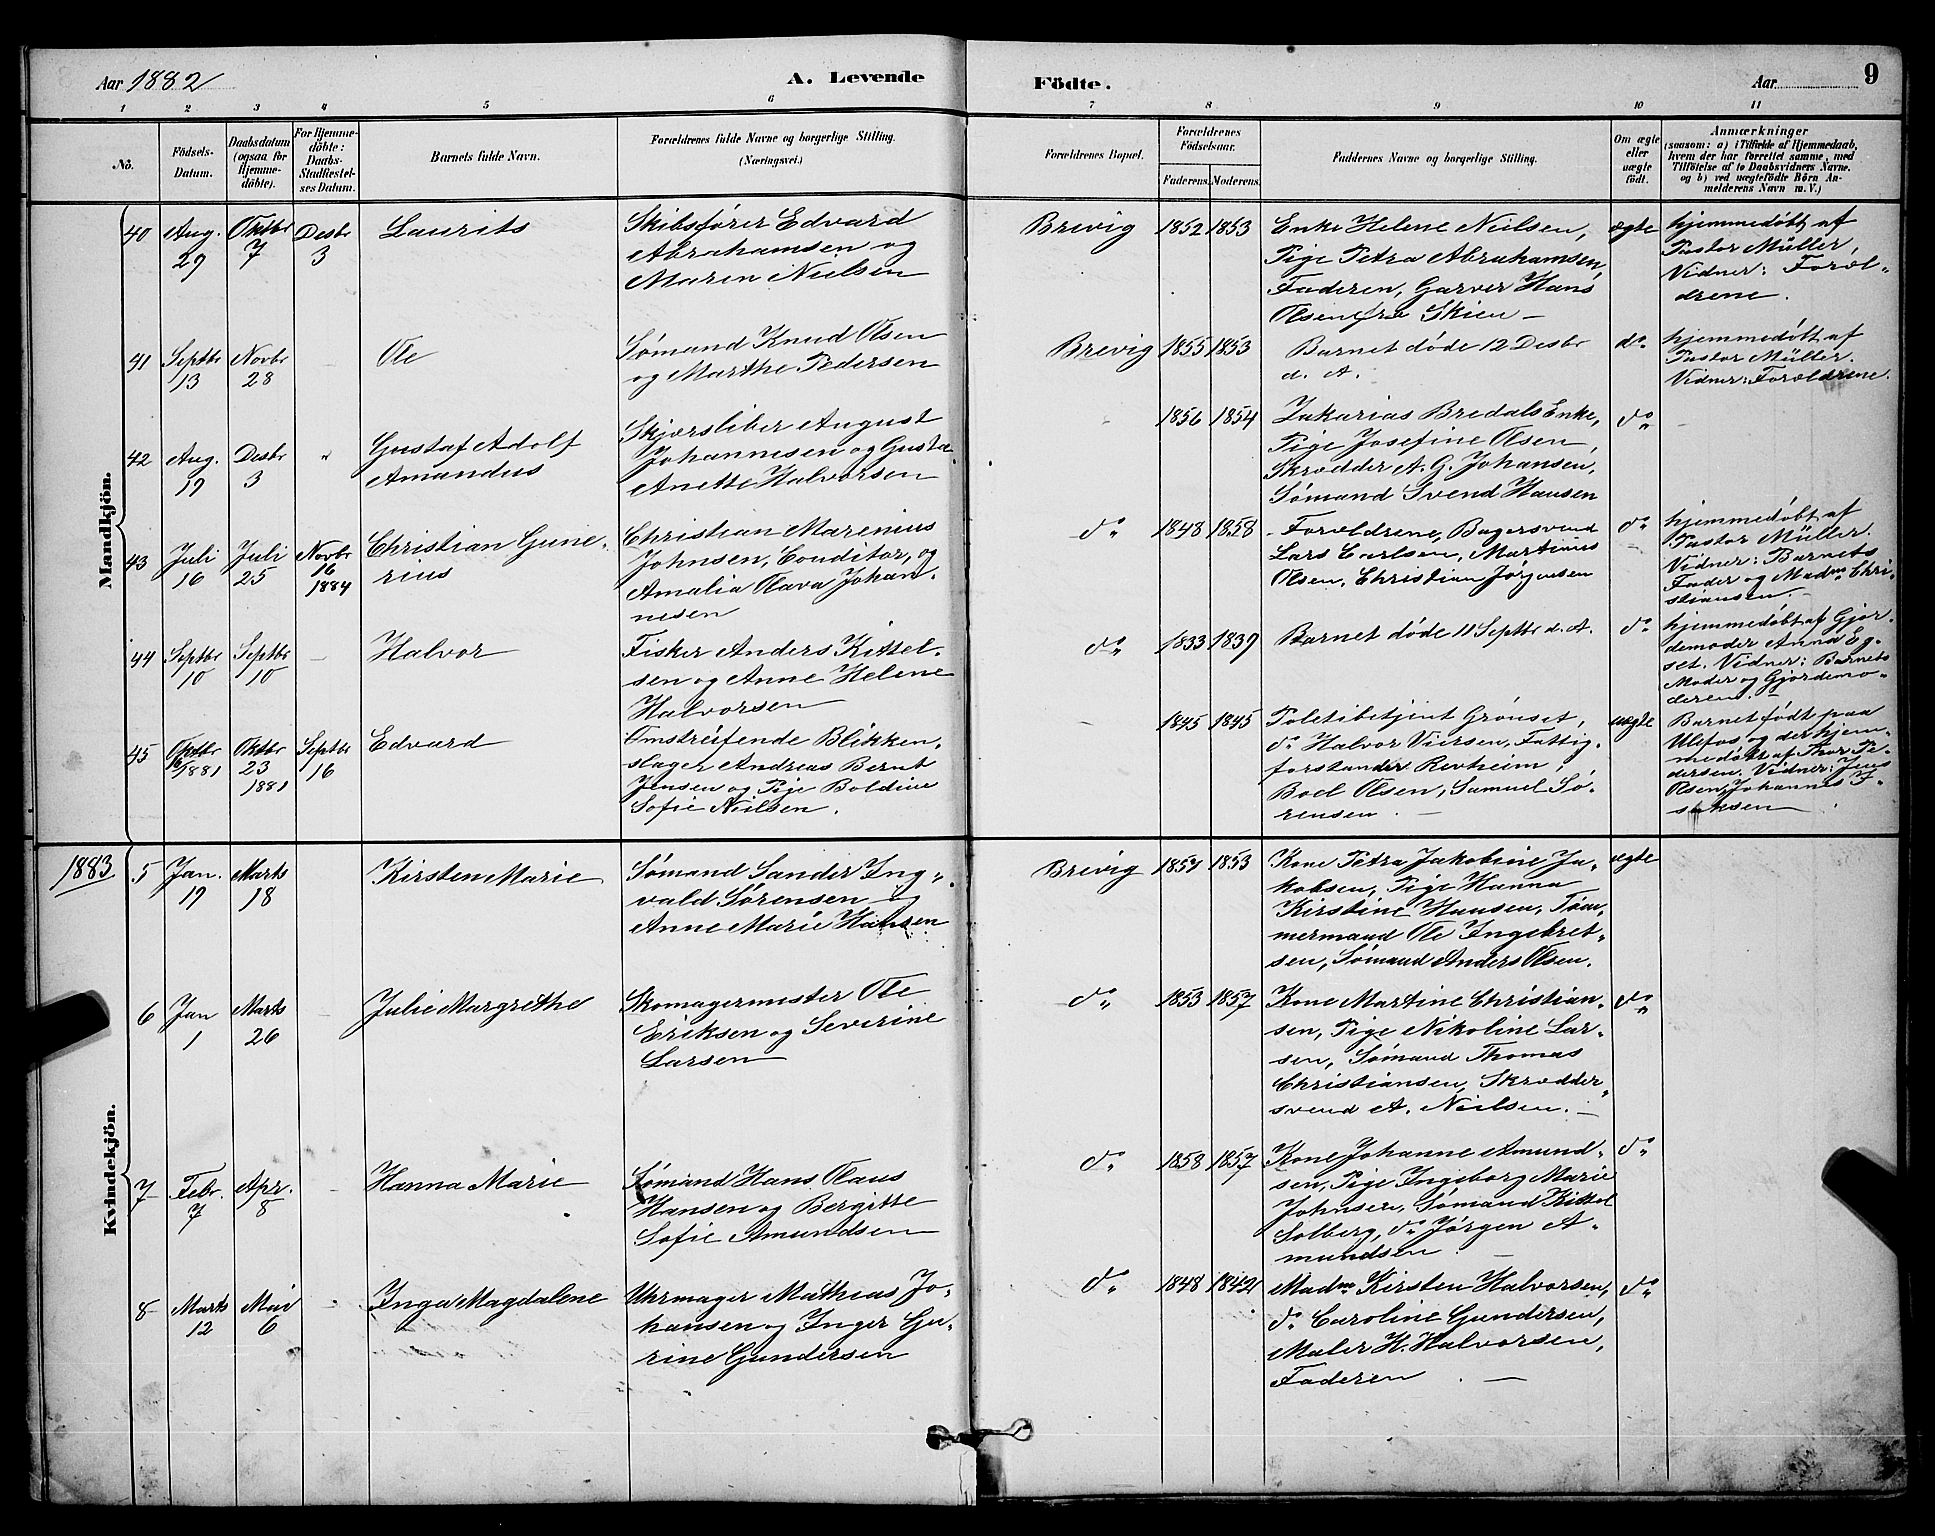 Aar 1882
A. Levende
Födte.
Aar
9
1 2 3 4 5 6 7 8 9 10 11
No.
Födsels-
Datum.
Daabsdatum
(ogsaa for
Hjemme-
döbte).
For Hjemme-
döbte:
Daabs-
Stadfæstel-
ses Datum.
Barnets fulde Navn.
Forældrenes fulde Navne og borgerlige Stilling.
(Næringsvei.)
Forældrenes Bopæl.
Forældrenes
Födselsaar.
Faderens. Moderens.
Faddernes Navne og borgerlige Stilling.
Om ægte
eller
uægte
födt.
Anmærkninger
(saasom: a) i Tilfælde af Hjemmedaab,
hvem der har forrettet samme, med
Tilföielse af to Daabsvidners Navne,
og b) ved uægtefödte Börn An-
melderens Navn m. V.)
Mandkjön.
40
Aug.
29
Oktbr
7
Desbr
3
Laurits
Skibsfører Edvard
Abrahamsen og
Maren Nielsen
Brevig 1852 1853
Enke Helene Nielsen,
Pige Petra Abrahamsen,
Faderen, Garver Hans
Olsen fra Skien
ægte
hjemmedøbt af
Pastor Müller,
Vidner: Foræl-
drene.
41
Septbr
13
Novbr
28
Ole
Sømand Knud Olsen
og Marthe Pedersen
Brevig 1855 1853
Barnet døde 12 Desbr
d. A.
do
hjemmedøbt af
Pastor Müller.
Vidner: Forældrene.
42
Aug.
19
Desbr
3
"
Gustaf Adolf
Amandus
Skjærsliber August
Johannesen og Gusta
Anette Halvorsen
1856 1854
Zakarias Bredals Enke,
Pige Josefine Olsen,
Skrædder A. G. Johansen,
Sømand Svend Hansen
do
43
Juli
16
Juli
25
Novbr
16
1884
Christian Gune-
rius
Christian Marenius
Johnsen, Conditor, og
Amalia Olava Johan-
nesen
do 1848 1858
Forældrene, Bagersvend
Lars Carlsen, Martinus
Olsen, Christian Jørgensen
do
hjemmedøbt af
Pastor Müller.
Vidner: Barnets
Fader og Madm Chri-
stiansen.
44
Septbr
10
Septbr
10
Halvor
Fisker Anders Kittel-
sen og Anne Helene
Halvorsen
do 1833 1839
Barnet døde 11 Septbr d. A.
do
hjemmedøbt af Gjor-
demoder Anna Eg-
set. Vidner: Barnets
Moder og Gjordemo-
deren.
45
Oktbr
1881
Oktbr
23
1881
Septbr
16
Edvard
Omstreifende Blikken-
slager Andreas Bernt
Jensen og Pige Boldine
Sofie Nielsen.
1845 1845
Politibetjent Grønset,
do Halvor Viersen, Fattig-
forstander Revheim,
Boel Olsen, Samuel Sø-
rensen.
uægte
Barnet født paa
Ulefos og der hjem-
medøbt af Thor Pe-
dersen. Vidner: Jens
Olsen, Johannes I-
saksen
Kvindekjön.
1883
5
Jan.
17
Marts
18
Kirsten Marie
Sømand Sander Ing-
vald Sørensen og
Anne Marie Hansen
Brevig 1853
Kone Petra Jakobine Ja-
kobsen, Pige Hanna
Kirstine Hansen, Tøm-
mermand Ole Ingebret-
sen, Sømand Anders Olsen.
ægte
6
Jan
1
Marts
26
Julie Margrethe
Skomagermester Ole
Eriksen og Severine
Larsen
do 1853 1857
Kone Martine Christian-
sen, Pige Nikoline Lar-
sen, Sømand Thomas
Christiansen, Skrædder-
svend A. Nielsen.
do
7
Febr.
7
Apr.
8
Hanna Marie
Sømand Hans Olaus
Hansen og Bergitte
Sofie Amundsen
do 1858 1857
Kone Johanne Amund-
sen, Pige Ingeborg Marie
Johnsen, Sømand Kittel
Solberg, do Jørgen A-
mundsen
do
8
Marts
12
Mai
6
Inga Magdalene
Uhrmager Mathias Jo-
hansen og Inger Gu-
rine Gundersen
do 1848 1842
Madm Kirsten Halvorsen,
do Caroline Gundersen,
Maler H. Halvorsen,
Faderen
do